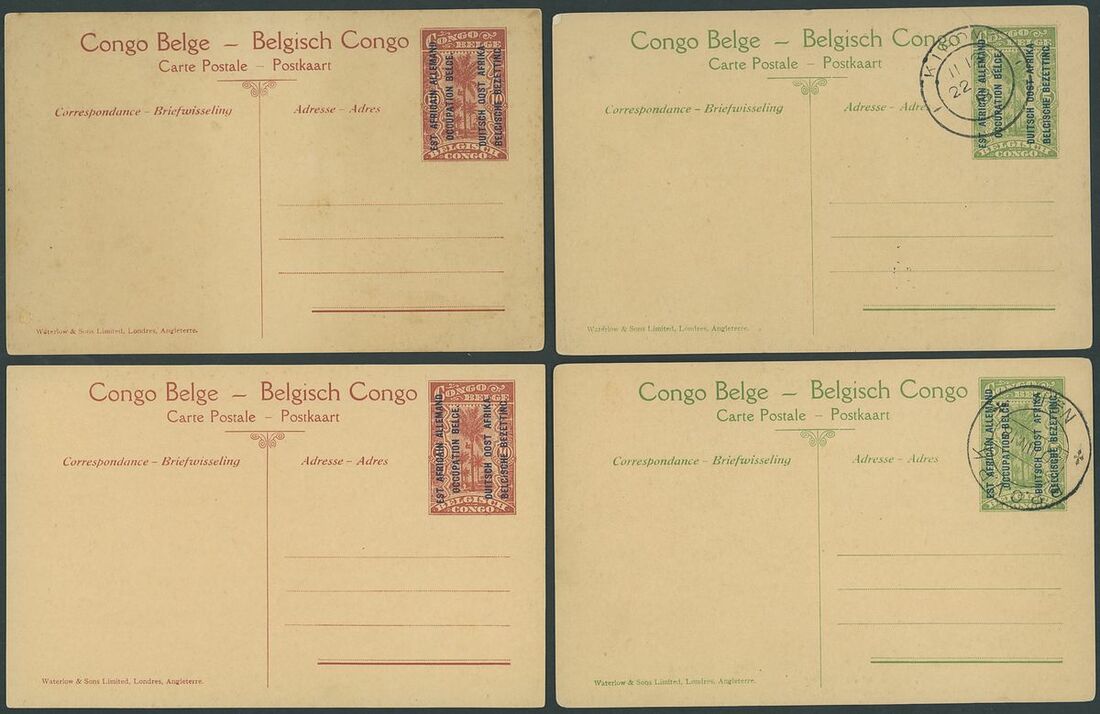 Congo Belge – Belgisch Congo
Carte Postale – Postkaart
Correspondance – Briefwisseling
Adresse – Adres
CONGO
BELGE
EST AFRICAIN ALLEMAND
OCCUPATION BELGE.
DUITSCH OOST AFRIKA.
BELGISCHE BEZETTING.
BELGISCH
CONGO
Waterlow & Sons Limited, Londres, Angleterre.
Congo Belge – Belgisch Congo
Carte Postale – Postkaart
Correspondance – Briefwisseling
Adresse – Adres
EST AFRICAIN ALLEMAND
OCCUPATION BELGE.
DUITSCH OOST AFRIKA.
BELGISCHE BEZETTING.
BELGISCH
CONGO
22
Waterlow & Sons Limited, Londres, Angleterre.
Congo Belge – Belgisch Congo
Carte Postale – Postkaart
Correspondance – Briefwisseling
Adresse – Adres
CONGO
BELGE
EST AFRICAIN ALLEMAND
OCCUPATION BELGE.
DUITSCH OOST AFRIKA.
BELGISCHE BEZETTING.
BELGISCH
CONGO
Waterlow & Sons Limited, Londres, Angleterre.
Congo Belge – Belgisch Congo
Carte Postale – Postkaart
Correspondance – Briefwisseling
Adresse – Adres
EST AFRICAIN ALLEMAND
OCCUPATION BELGE.
DUITSCH OOST AFRIKA.
BELGISCHE BEZETTING.
Waterlow & Sons Limited, Londres, Angleterre.